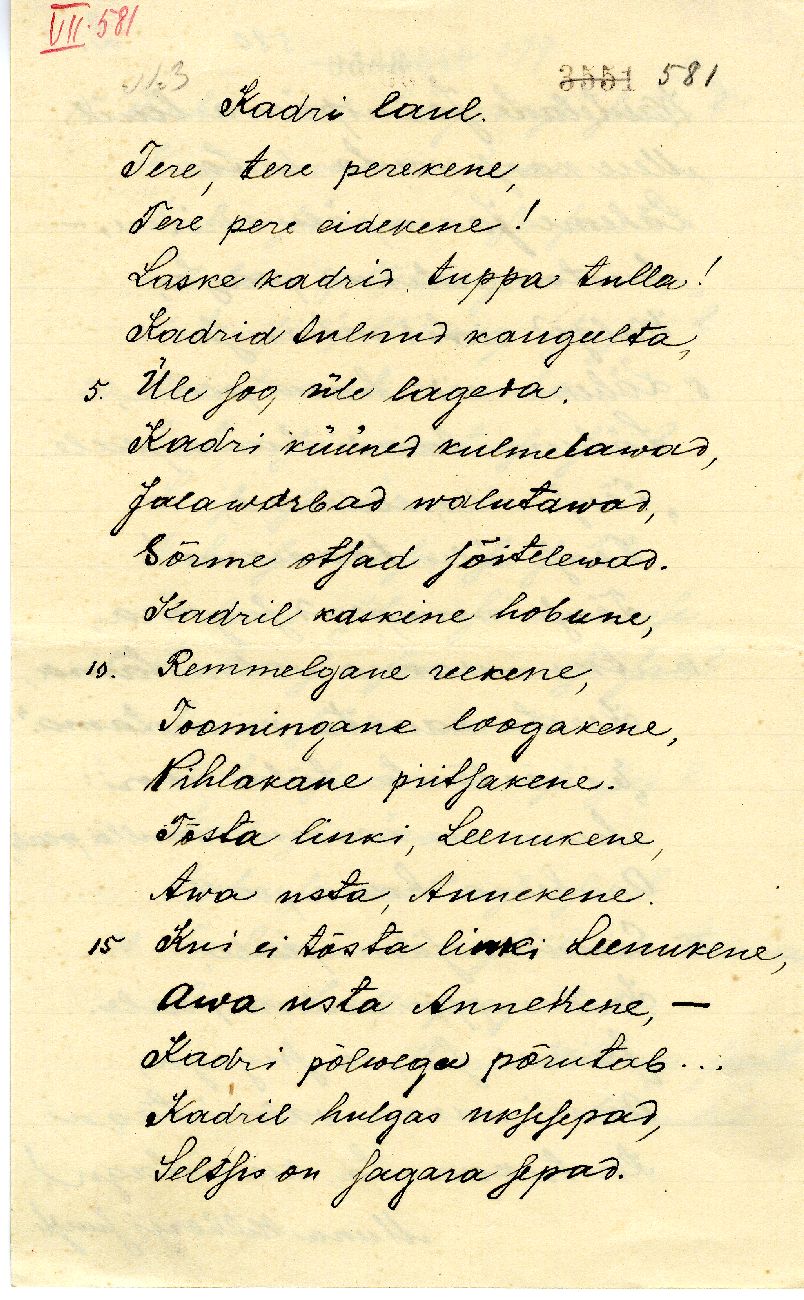 VII. 581
3551 581
Kadri laul.
Tere, tere perekene,
Tere pere eidekene!
Laske kadrid tuppa tulla!
Kadrid tulnud kaugelta,
5. Üle soo, üle lageda.
Kadri küüned külmetawad,
Jalawarbad walutawad,
Sõrme otsad sõitelewad.
Kadril kaskine hobune,
10. Remmelgane reekene,
Toomingane loogakene,
Pihlakane piitsakene.
Tõsta linki, Leenukene,
Awa usta, Annekene.
15 Kui ei tõsta linki Leenukene,
Awa usta Annekene, —
Kadri põlwega põrutab...
Kadril hulgas uksesepad,
Seltsis on sagara sepad.